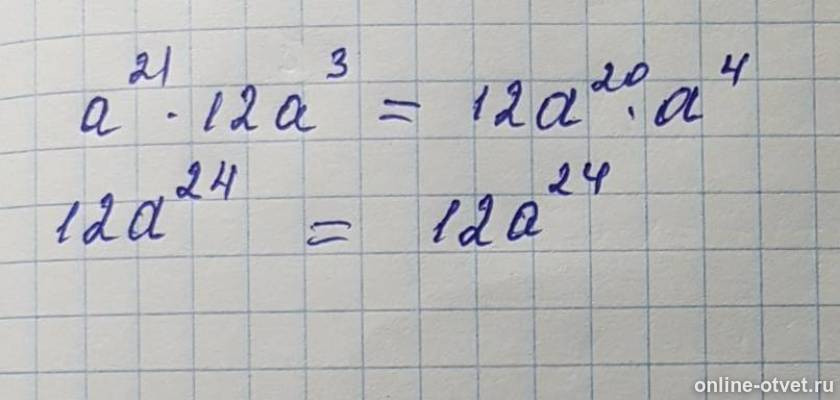 a²¹ · 12a³ = 12a²⁰ · a⁴
12a²⁴ = 12a²⁴
online-otvet.ru